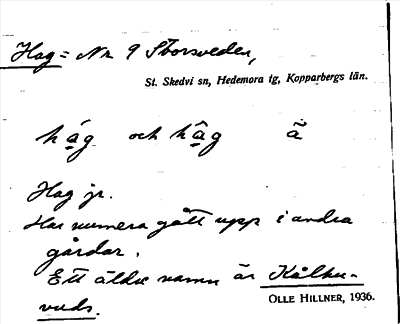 Hag = Nr 9 Storsveden,
St. Skedvi sn, Hedemora tg, Kopparbergs län.
hág och hâg ã
Hag jr.
Har numera gått upp i andra
gårdar.
Ett äldre namn är Kålhu-
vuds.
OLLE HILLNER, 1936.